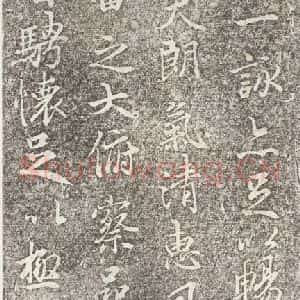 一詠亦足以暢
天朗氣清惠風
宙之大俯察品
騁懷足以極